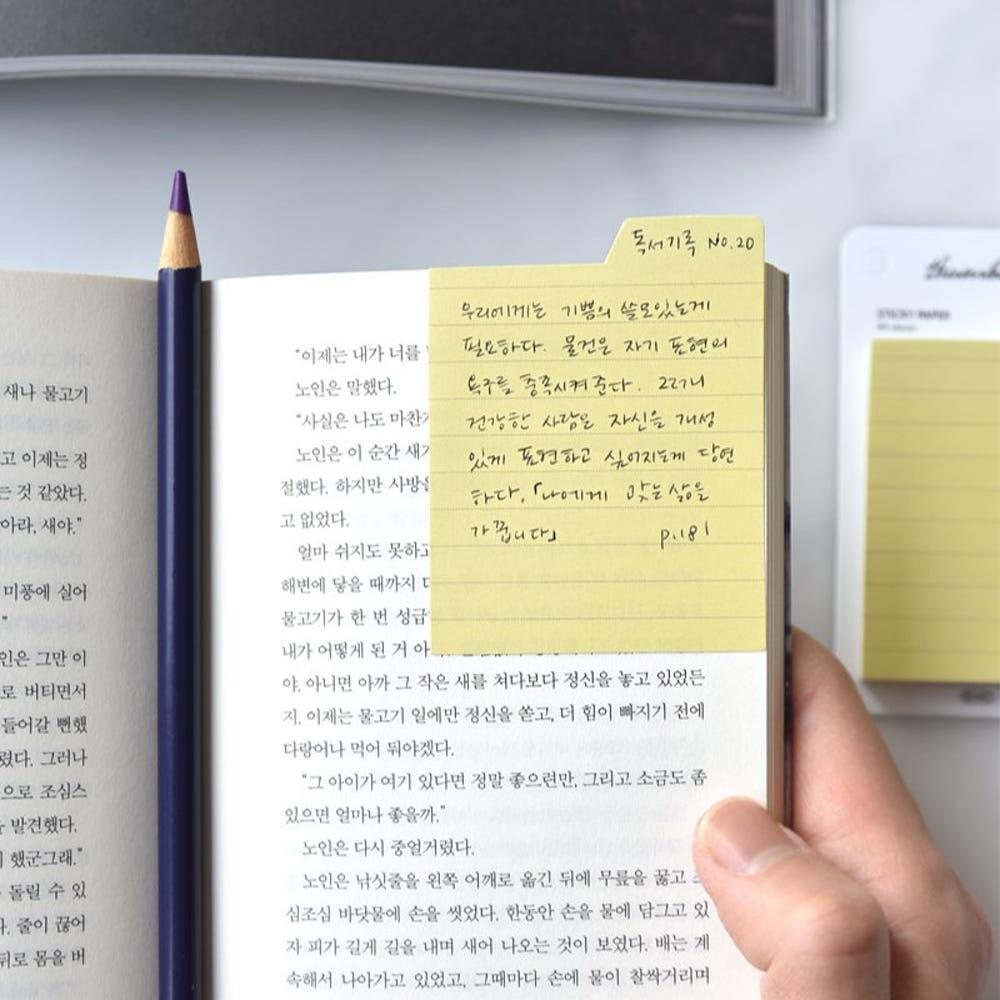 새나 물고기
고 이제는 정
는 것 같았다.
아라, 새야."
미풍에 실어
"
인은 그만 이
로 버티면서
들어갈 뻔했
렸다. 그러나
으로 조심스
발견했다.
했군그래."
돌릴 수 있
다. 줄이 끊어
뒤로 몸을 버
독서기록 NO.20
우리에게는 기쁨의 쓸모있는게
필요하다. 물건은 자기 표현의
욕구를 충족시켜 준다. 그러니
건강한 사람은 자신을 개성
있게 표현하고 싶어지는게 당연
하다. 「나에게 맞는 삶을
가꿉니다」 p.181
"이제는 내가 너를
노인은 말했다.
"사실은 나도 마찬가
노인은 이 순간 새가
절했다. 하지만 사방을
고 없었다.
얼마 쉬지도 못하고
해변에 닿을 때까지 더
물고기가 한 번 성급
내가 어떻게 된 거 아
야. 아니면 아까 그 작은 새를 쳐다보다 정신을 놓고 있었든
지. 이제는 물고기 일에만 정신을 쏟고, 더 힘이 빠지기 전에
다랑어나 먹어 둬야겠다.
"그 아이가 여기 있다면 정말 좋으련만, 그리고 소금도 좀
있으면 얼마나 좋을까."
노인은 다시 중얼거렸다.
노인은 낚싯줄을 왼쪽 어깨로 옮긴 뒤에 무릎을 꿇고
심조심 바닷물에 손을 씻었다. 한동안 손을 물에 담그고 있
자 피가 길게 길을 내며 새어 나오는 것이 보였다. 배는 계
속해서 나아가고 있었고, 그때마다 손에 물이 찰싹거리며
STICKY PAPER